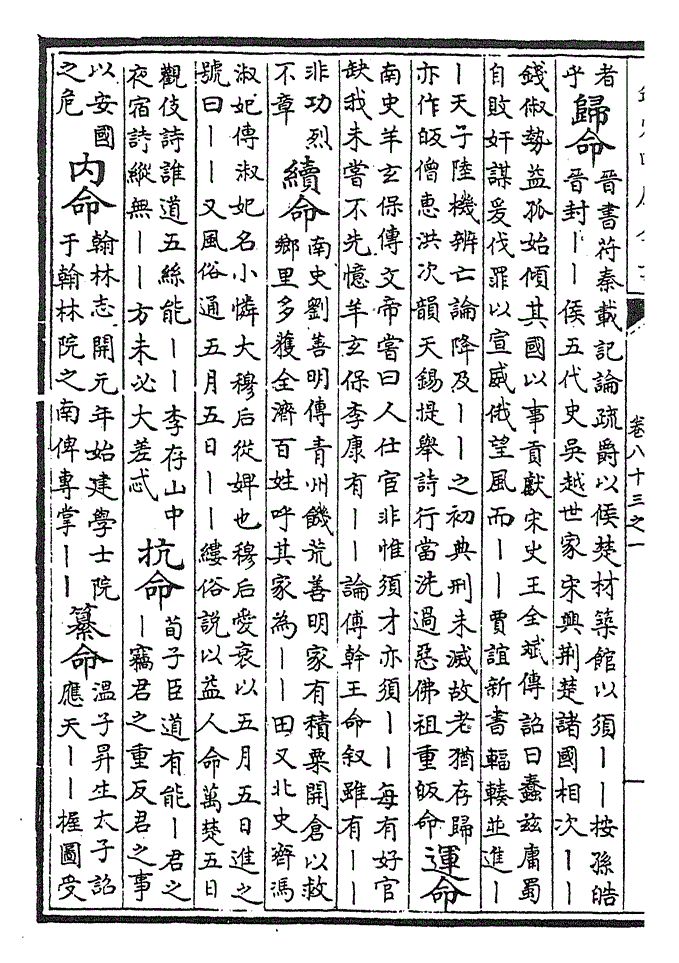 卷八十三之一
者
乎
歸命
晉書苻秦載記論疏爵以侯楚材築館以須丨丨按孫皓
晉封丨丨侯五代史吳越世家宋興荆楚諸國相次丨丨
錢俶勢益孤始傾其國以事貢獻宋史王全斌傳詔曰蠢兹庸蜀
自敗奸謀爰伐罪以宣威俄望風而丨丨賈誼新書輻輳並進丨
丨天子陸機辨亡論降及丨丨之初典刑未滅故老猶存歸
亦作皈僧惠洪次韻天錫提舉詩行當洗過惡佛祖重皈命
運命
南史羊玄保傳文帝嘗曰人仕官非惟須才亦須丨丨每有好官
缺我未嘗不先憶羊玄保李康有丨丨論傅幹王命叙雖有丨丨
非功烈
不章
續命
南史劉善明傳青州饑荒善明家有積粟開倉以救
鄉里多獲全濟百姓呼其家為丨丨田又北史齊馮
淑妃傳淑妃名小憐大穆后從婢也穆后愛衰以五月五日進之
號曰丨丨又風俗通五月五日丨丨縷俗說以益人命萬楚五日
觀伎詩誰道五絲能丨丨李存山中
夜宿詩縱無丨丨方未必大差忒
抗命
荀子臣道有能丨君之
丨竊君之重反君之事
以安國
之危
内命
翰林志開元年始建學士院
于翰林院之南俾專掌丨丨
纂命
温子昇生太子詔
應天丨丨握圖受